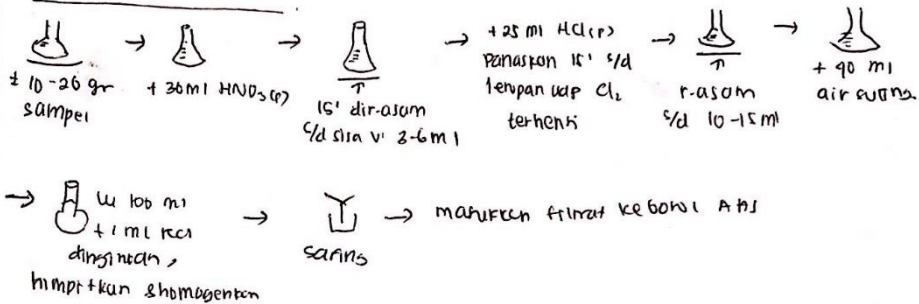 ± 10-20 gr
sampel
+ 30 ml HNO3(p)
15' dir-asam
s/d sisa V' 3-6 ml
+ 25 ml HCl(p)
Panaskan 15' s/d
letupan uap Cl2
terhenti
r-asam
s/d 10-15 ml
+ 40 ml
air suling
lu 100 ml
+ 1 ml KCl
dinginkan,
himpitkan & homogenkan
saring
masukkan filtrat ke botol AAS